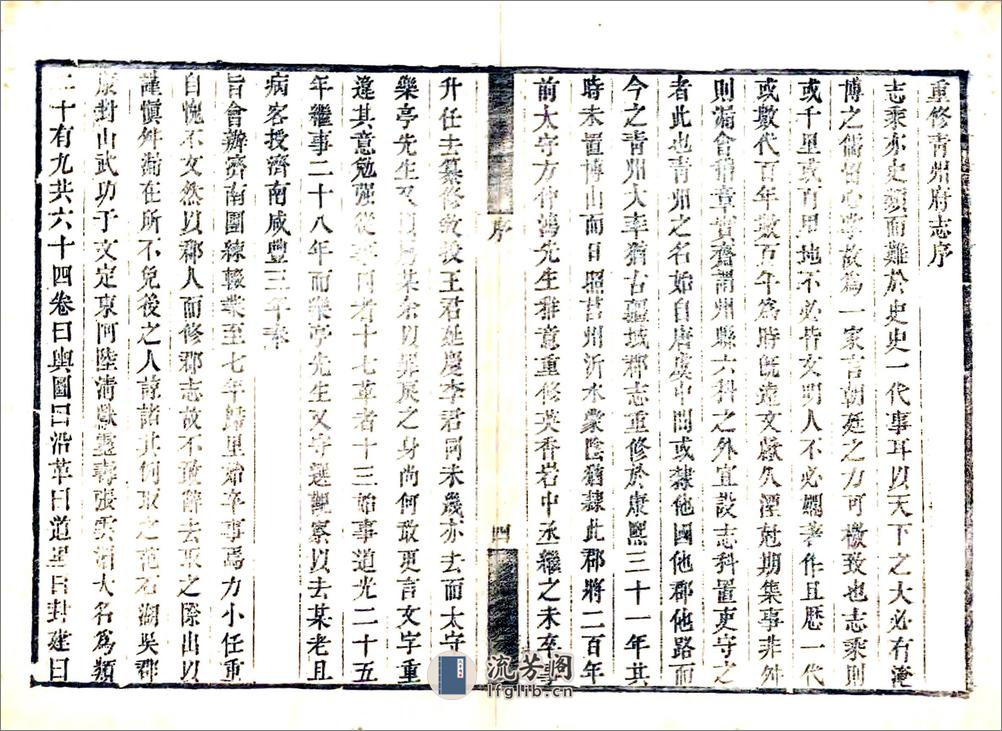 重修青州府志序
志乘亦史類而難於史史一代事耳以天下之大必有淹
博之儒留心掌故為一家言朝廷之力可檄致也志乘則
或千里或百里地不必皆文明人不必嫻著作且歷一代
或數代百年數百年為時旣遠文獻久湮尅期集事非舛
則漏會稽章實齋謂州縣六科之外宜設志科置吏守之
者此也青州之名始自唐虞中間或隸他國他郡他路而
今之青州大率猶古疆域郡志重修於康熙三十一年其
時未置博山而日照莒州沂水蒙陰猶隸此郡將二百年
前太守方仲鴻先生雅意重修英香岩中丞繼之未卒事
序
四
升任去纂修敎授王君延慶李君同未幾亦去而太守
樂亭先生又以屬某余以罪戾之身尚何敢更言文字重
違其意勉强從事同者十七革者十三始事道光二十五
年繼事二十八年而樂亭先生又守選觀察以去某老且
病客授濟南咸豐三年奉
旨會辦濟南團練輟業至七年歸里始卒事焉力小任重
自愧不文然以郡人而修郡志故不敢辭去取之際出以
謹愼舛漏在所不免後之人諒諸其何取之范石湖吳郡
康對山武功于文定東阿陸清獻靈壽張雲湄大名為類
二十有九共六十四卷曰輿圖曰沿革曰道里曰封建曰
流芳阁
lfglib.cn